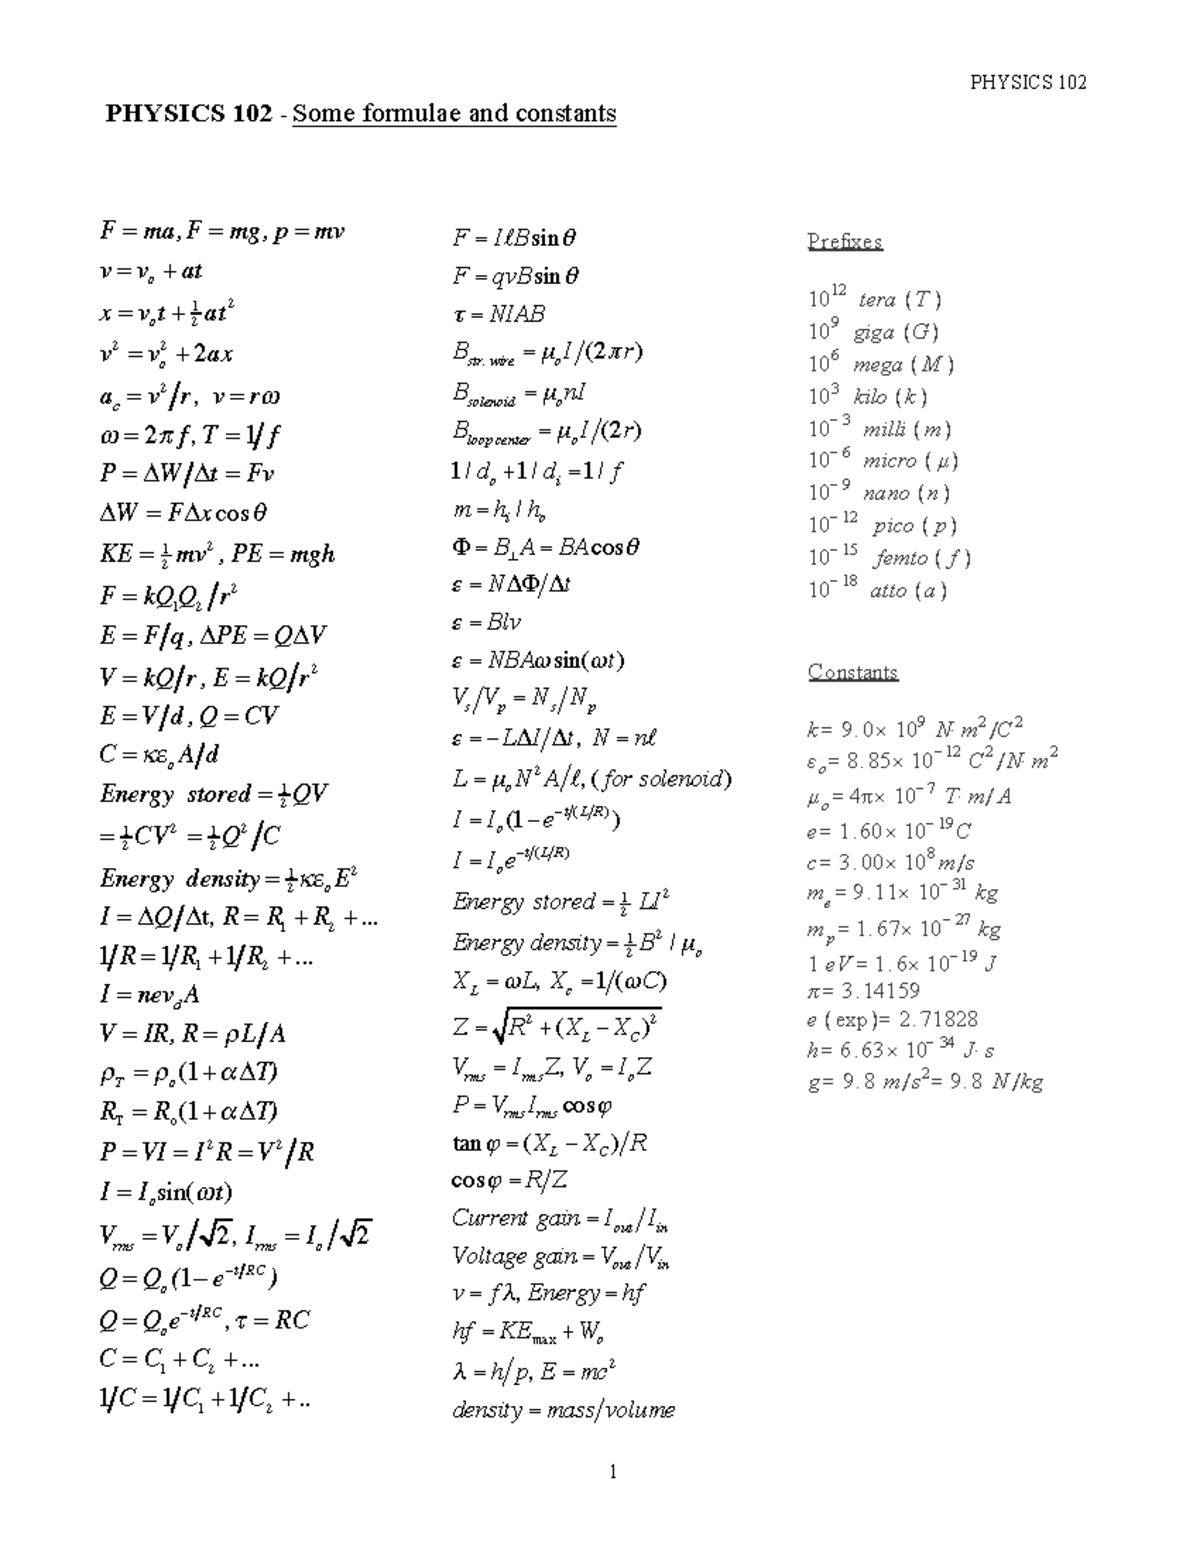 PHYSICS 102
PHYSICS 102 - Some formulae and constants
F = ma, F = mg, p = mv
v = v₀ + at
x = v₀t + ½at²
v² = v₀² + 2ax
a_c = v²/r, v = rω
ω = 2πf, T = 1/f
P = ΔW/Δt = Fv
ΔW = FΔx cos θ
KE = ½mv², PE = mgh
F = kQ₁Q₂/r²
E = F/q, ΔPE = QΔV
V = kQ/r, E = kQ/r²
E = V/d, Q = CV
C = κε₀A/d
Energy stored = ½QV
= ½CV² = ½Q²/C
Energy density = ½κε₀E²
I = ΔQ/Δt, R = R₁ + R₂ + ...
1/R = 1/R₁ + 1/R₂ + ...
I = nev_dA
V = IR, R = ρL/A
ρ_T = ρ₀(1 + αΔT)
R_T = R₀(1 + αΔT)
P = VI = I²R = V²/R
I = I₀sin(ωt)
V_rms = V₀/√2, I_rms = I₀/√2
Q = Q₀(1 − e^(−t/RC))
Q = Q₀e^(−t/RC), τ = RC
C = C₁ + C₂ + ...
1/C = 1/C₁ + 1/C₂ + ..
F = IℓB sin θ
F = qvB sin θ
τ = NIAB
B_str. wire = μ₀I/(2πr)
B_solenoid = μ₀nI
B_loop center = μ₀I/(2r)
1/d_o + 1/d_i = 1/f
m = h_i / h_o
Φ = B⊥A = BA cos θ
ε = NΔΦ/Δt
ε = Blv
ε = NBAω sin(ωt)
V_s/V_p = N_s/N_p
ε = −LΔI/Δt, N = nℓ
L = μ₀N²A/ℓ, (for solenoid)
I = I₀(1 − e^(−t/(L/R)))
I = I₀e^(−t/(L/R))
Energy stored = ½ LI²
Energy density = ½B² / μ₀
X_L = ωL, X_c = 1/(ωC)
Z = √(R² + (X_L − X_C)²)
V_rms = I_rmsZ, V₀ = I₀Z
P = V_rmsI_rms cos φ
tan φ = (X_L − X_C)/R
cos φ = R/Z
Current gain = I_out/I_in
Voltage gain = V_out/V_in
v = fλ, Energy = hf
hf = KE_max + W₀
λ = h/p, E = mc²
density = mass/volume
Prefixes
10¹² tera (T)
10⁹ giga (G)
10⁶ mega (M)
10³ kilo (k)
10⁻³ milli (m)
10⁻⁶ micro (μ)
10⁻⁹ nano (n)
10⁻¹² pico (p)
10⁻¹⁵ femto (f)
10⁻¹⁸ atto (a)
Constants
k = 9.0× 10⁹ N·m²/C²
ε₀ = 8.85× 10⁻¹² C²/N·m²
μ₀ = 4π× 10⁻⁷ T·m/A
e = 1.60× 10⁻¹⁹ C
c = 3.00× 10⁸ m/s
m_e = 9.11× 10⁻³¹ kg
m_p = 1.67× 10⁻²⁷ kg
1 eV = 1.6× 10⁻¹⁹ J
π = 3.14159
e (exp) = 2.71828
h = 6.63× 10⁻³⁴ J·s
g = 9.8 m/s² = 9.8 N/kg
1